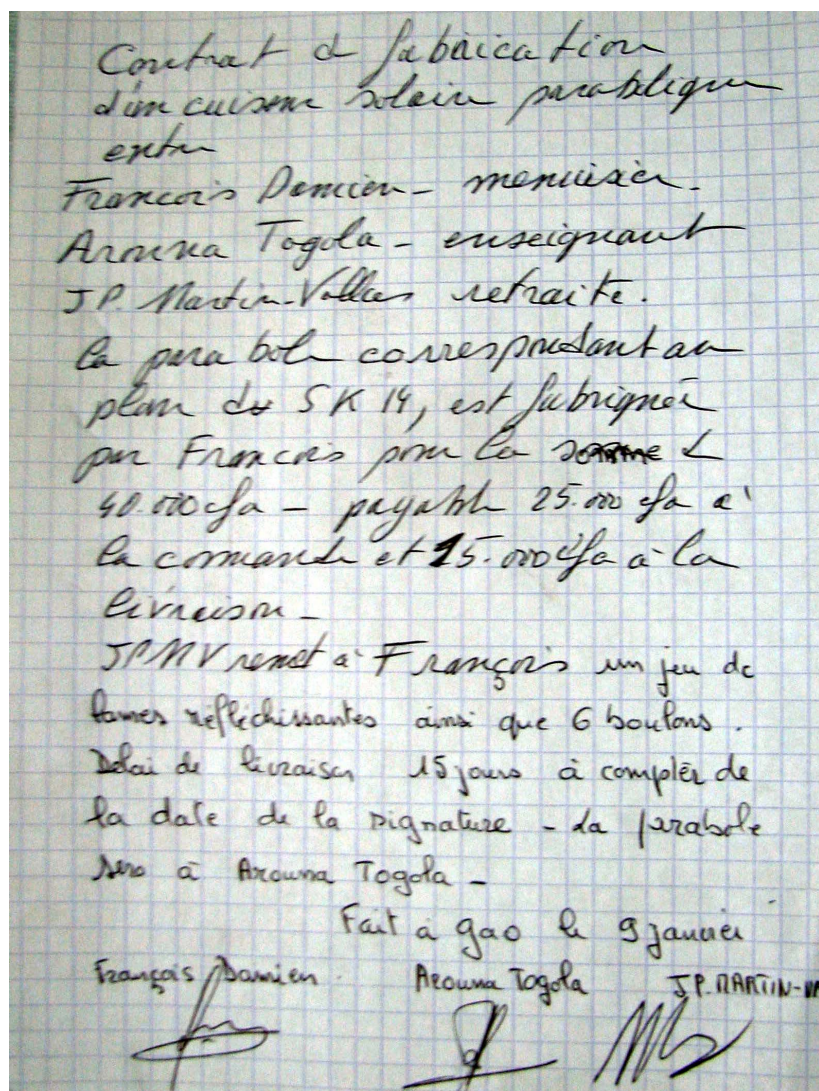 Contrat de fabrication
d'un cuiseur solaire parabolique
entre
Francois Damien - menuisier.
Arouna Togola - enseignant
JP. Martin-Vallas retraité.
la parabole correspondant au
plan du SK 14, est fabriquée
par Francois pour la somme de
40.000 cfa - payable 25.000 cfa à
la commande et 15.000 cfa à la
livraison -
JPMV remet à François un jeu de
lames réfléchissantes ainsi que 6 boulons.
Delai de livraison 15 jours à compter de
la date de la signature - La parabole
sera à Arouna Togola -
Fait à gao le 9 janvier
François Damien. Arouna Togola J.P. MARTIN-VA